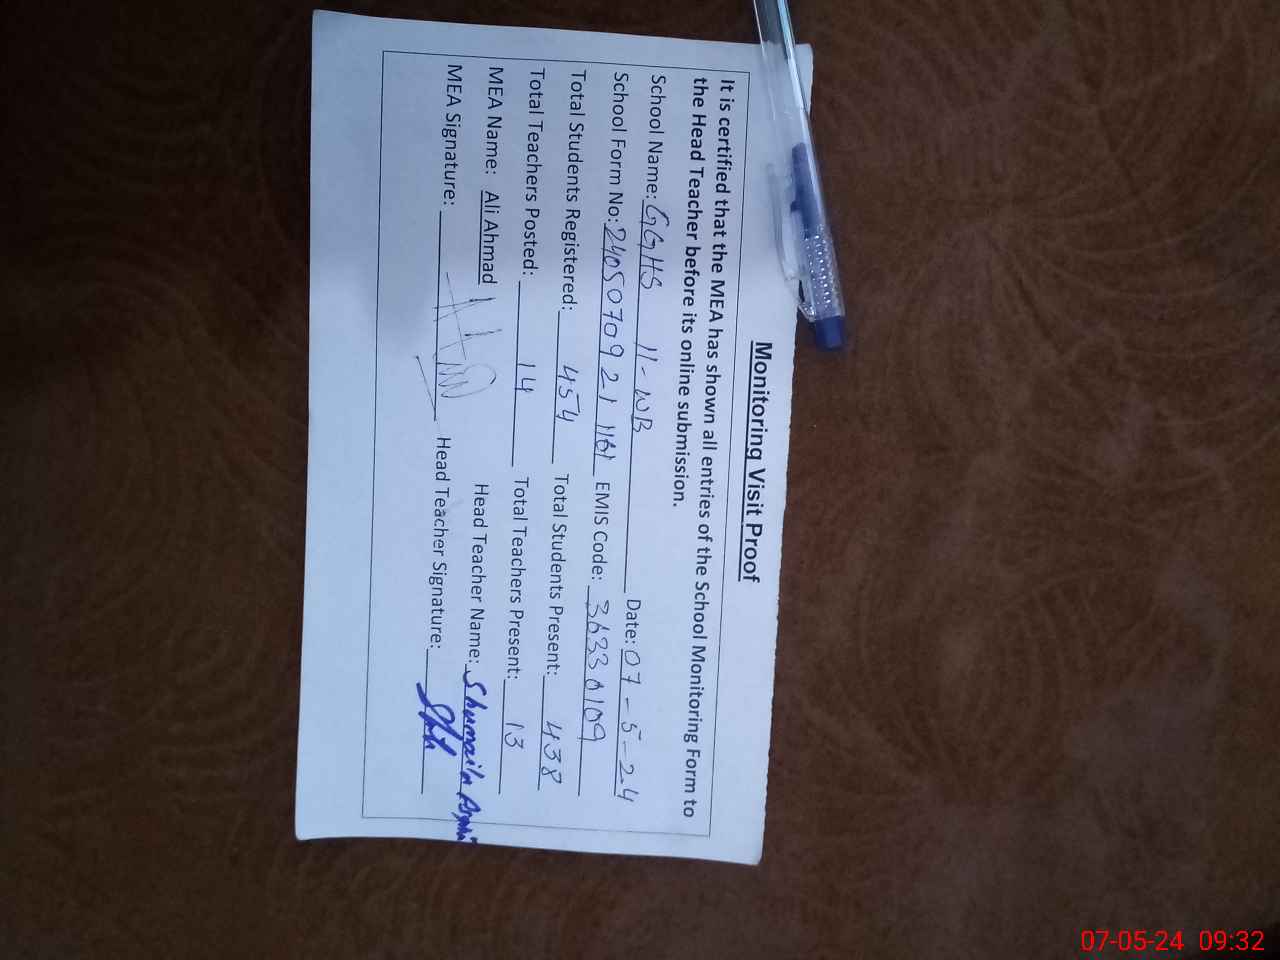 Monitoring Visit Proof
It is certified that the MEA has shown all entries of the School Monitoring Form to
the Head Teacher before its online submission.
School Name: GGHS 11-WB Date: 07-5-24
School Form No: 2405070921161 EMIS Code: 36330109
Total Students Registered: 454 Total Students Present: 438
Total Teachers Posted: 14 Total Teachers Present: 13
MEA Name: Ali Ahmad Head Teacher Name: Shumaila
MEA Signature: Head Teacher Signature:
07-05-24 09:32